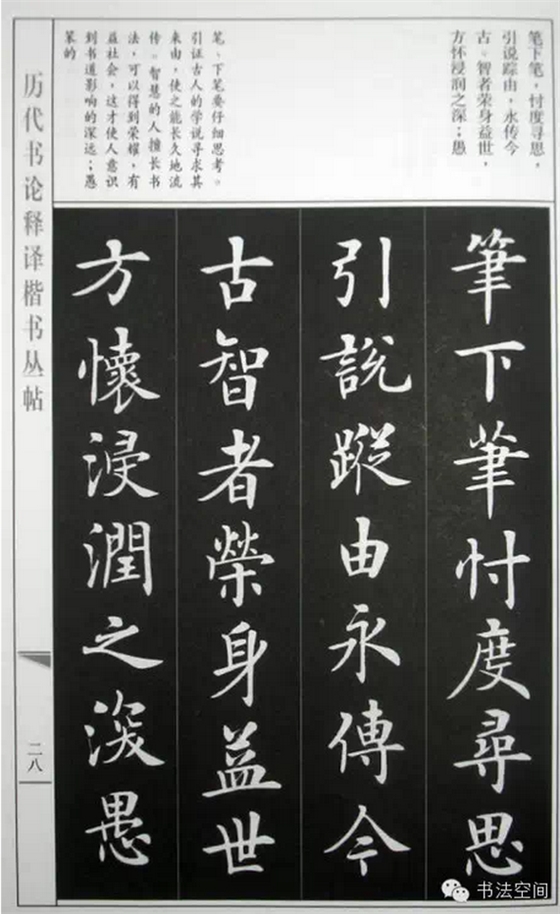 笔下笔，忖度寻思，
引说踪由，永传今
古。智者荣身益世，
方怀浸润之深；愚
笔、下笔要仔细思考。
引证古人的学说寻求其
来由，使之能长久地流
传。智慧的人擅长书
法，可以得到荣耀，有
益社会，这才使人意识
到书道影响的深远；愚
笨的
筆下筆忖度尋思
引說蹤由永傳今
古智者榮身益世
方懷浸潤之深愚
历代书论释译楷书丛帖
二八
书法空间